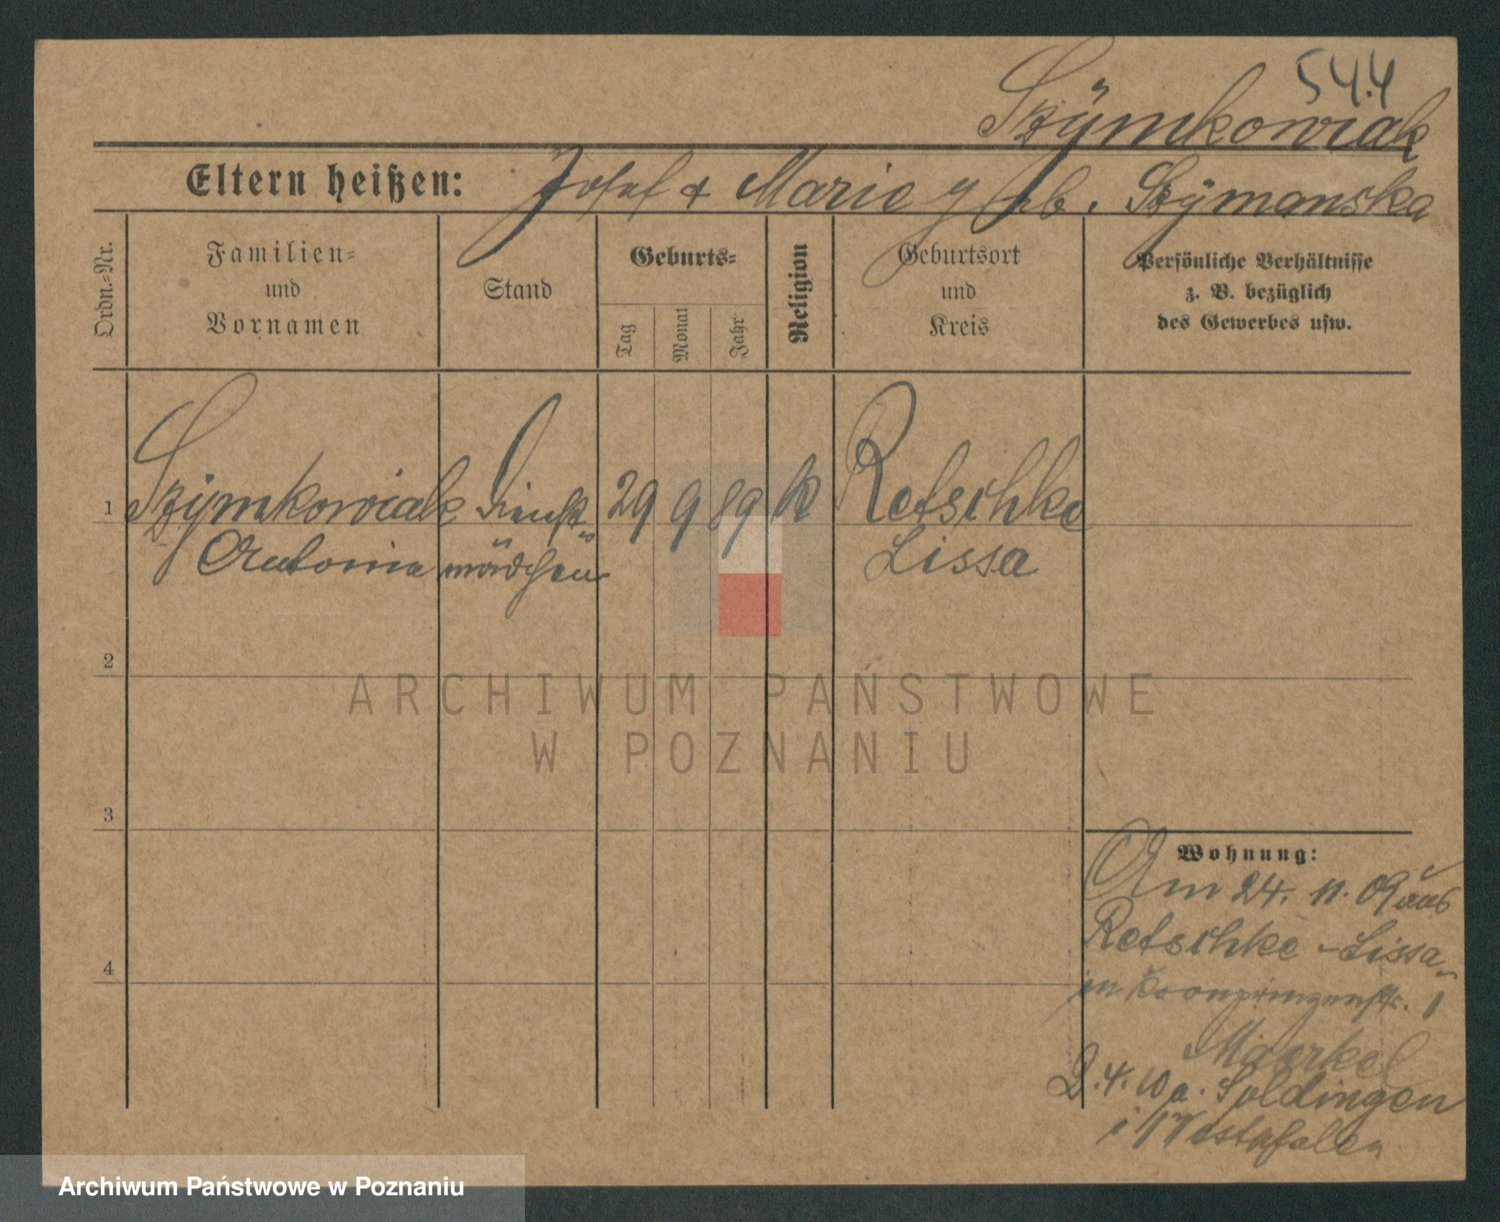 544
Szÿmkowiak
Eltern heißen: Josef & Marie geb. Szÿmanska
Ordn.-Nr.
Familien-
und
Vornamen
Stand
Geburts-
Tag
Monat
Jahr
Religion
Geburtsort
und
Kreis
Persönliche Verhältnisse
z. B. bezüglich
des Gewerbes usw.
1 Szymkowiak Dienst- 29 9 89 k Retschke
Antonie mädchen Lissa
2
3
4
Wohnung:
Am 24. 11. 09 aus
Retschke - Lissa
in Kronprinzenstr. 1
Maerkel
2. 4. 10 a. Soldingen
i/Westfalen
ARCHIWUM PAŃSTWOWE
W POZNANIU
Archiwum Państwowe w Poznaniu